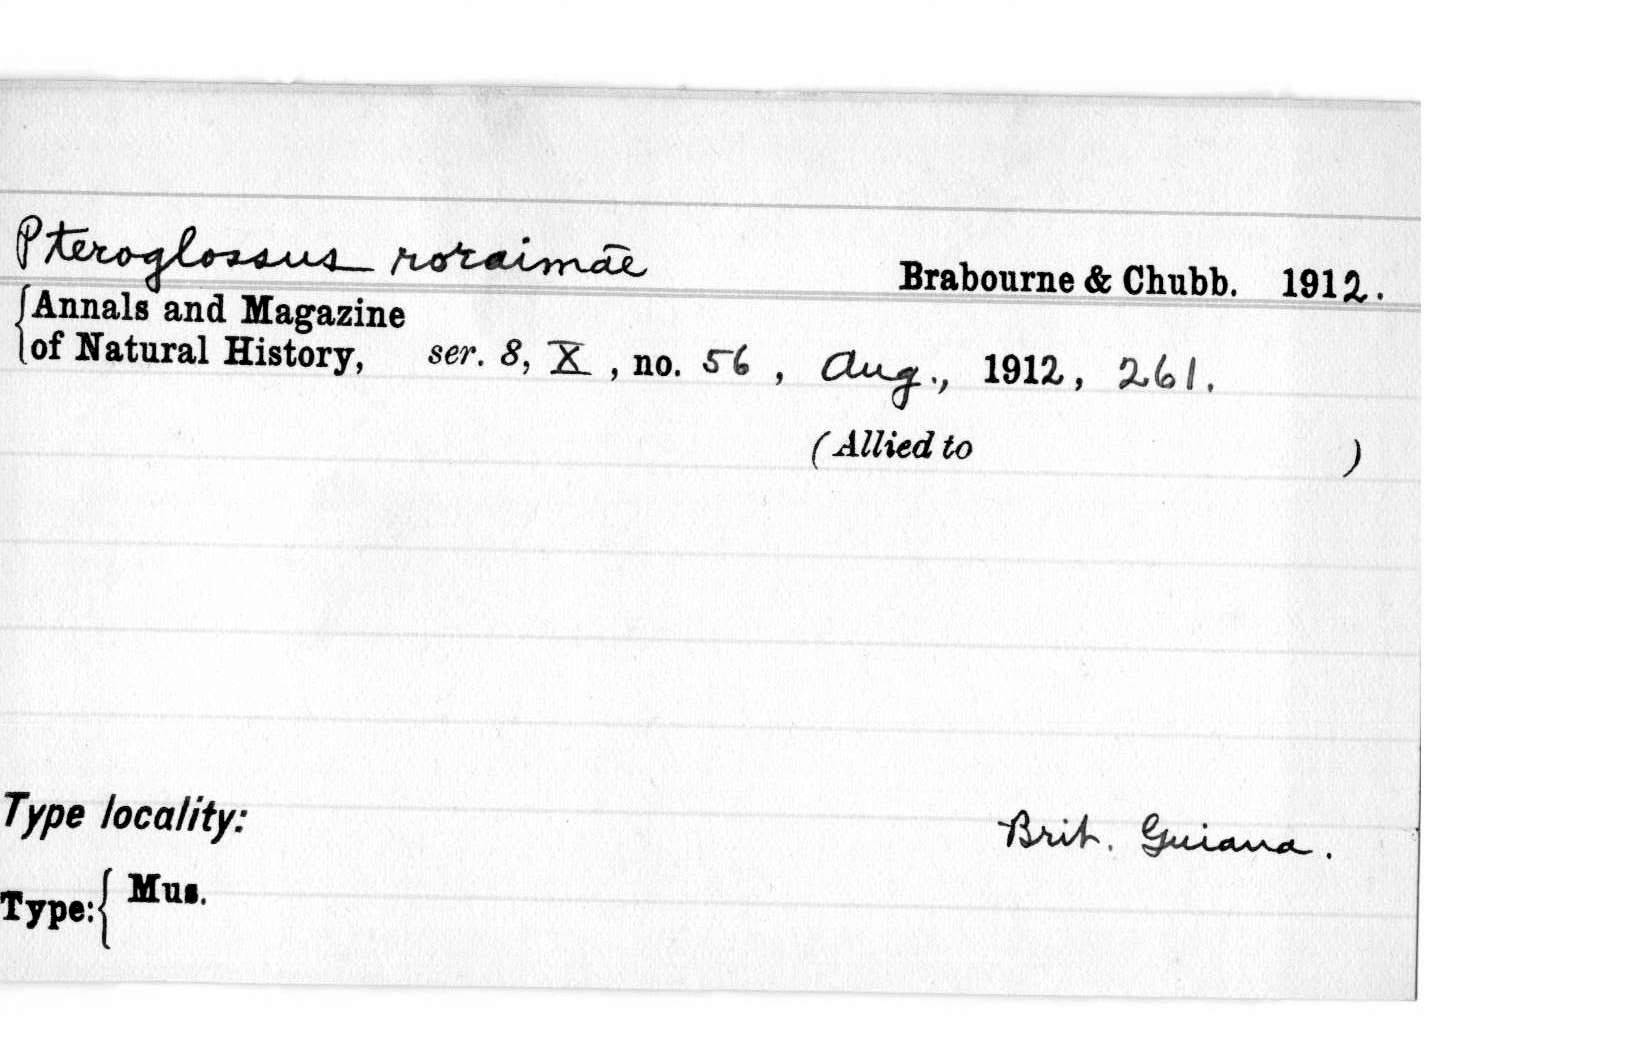 Pteroglossus roraimae Brabourne & Chubb. 1912.
Annals and Magazine
of Natural History, ser. 8, X, no. 56, Aug., 1912, 261.
(Allied to )
Type locality: Brit. Guiana.
Type: { Mus.